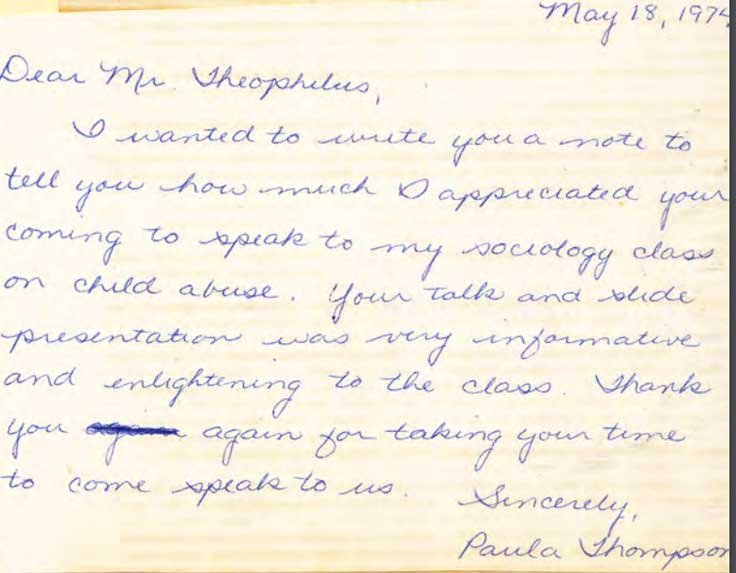 May 18, 197
Dear Mr. Theophilus,
I wanted to write you a note to
tell you how much I appreciated your
coming to speak to my sociology class
on child abuse. Your talk and slide
presentation was very informative
and enlightening to the class. Thank
you again for taking your time
to come speak to us.
Sincerely,
Paula Thompson